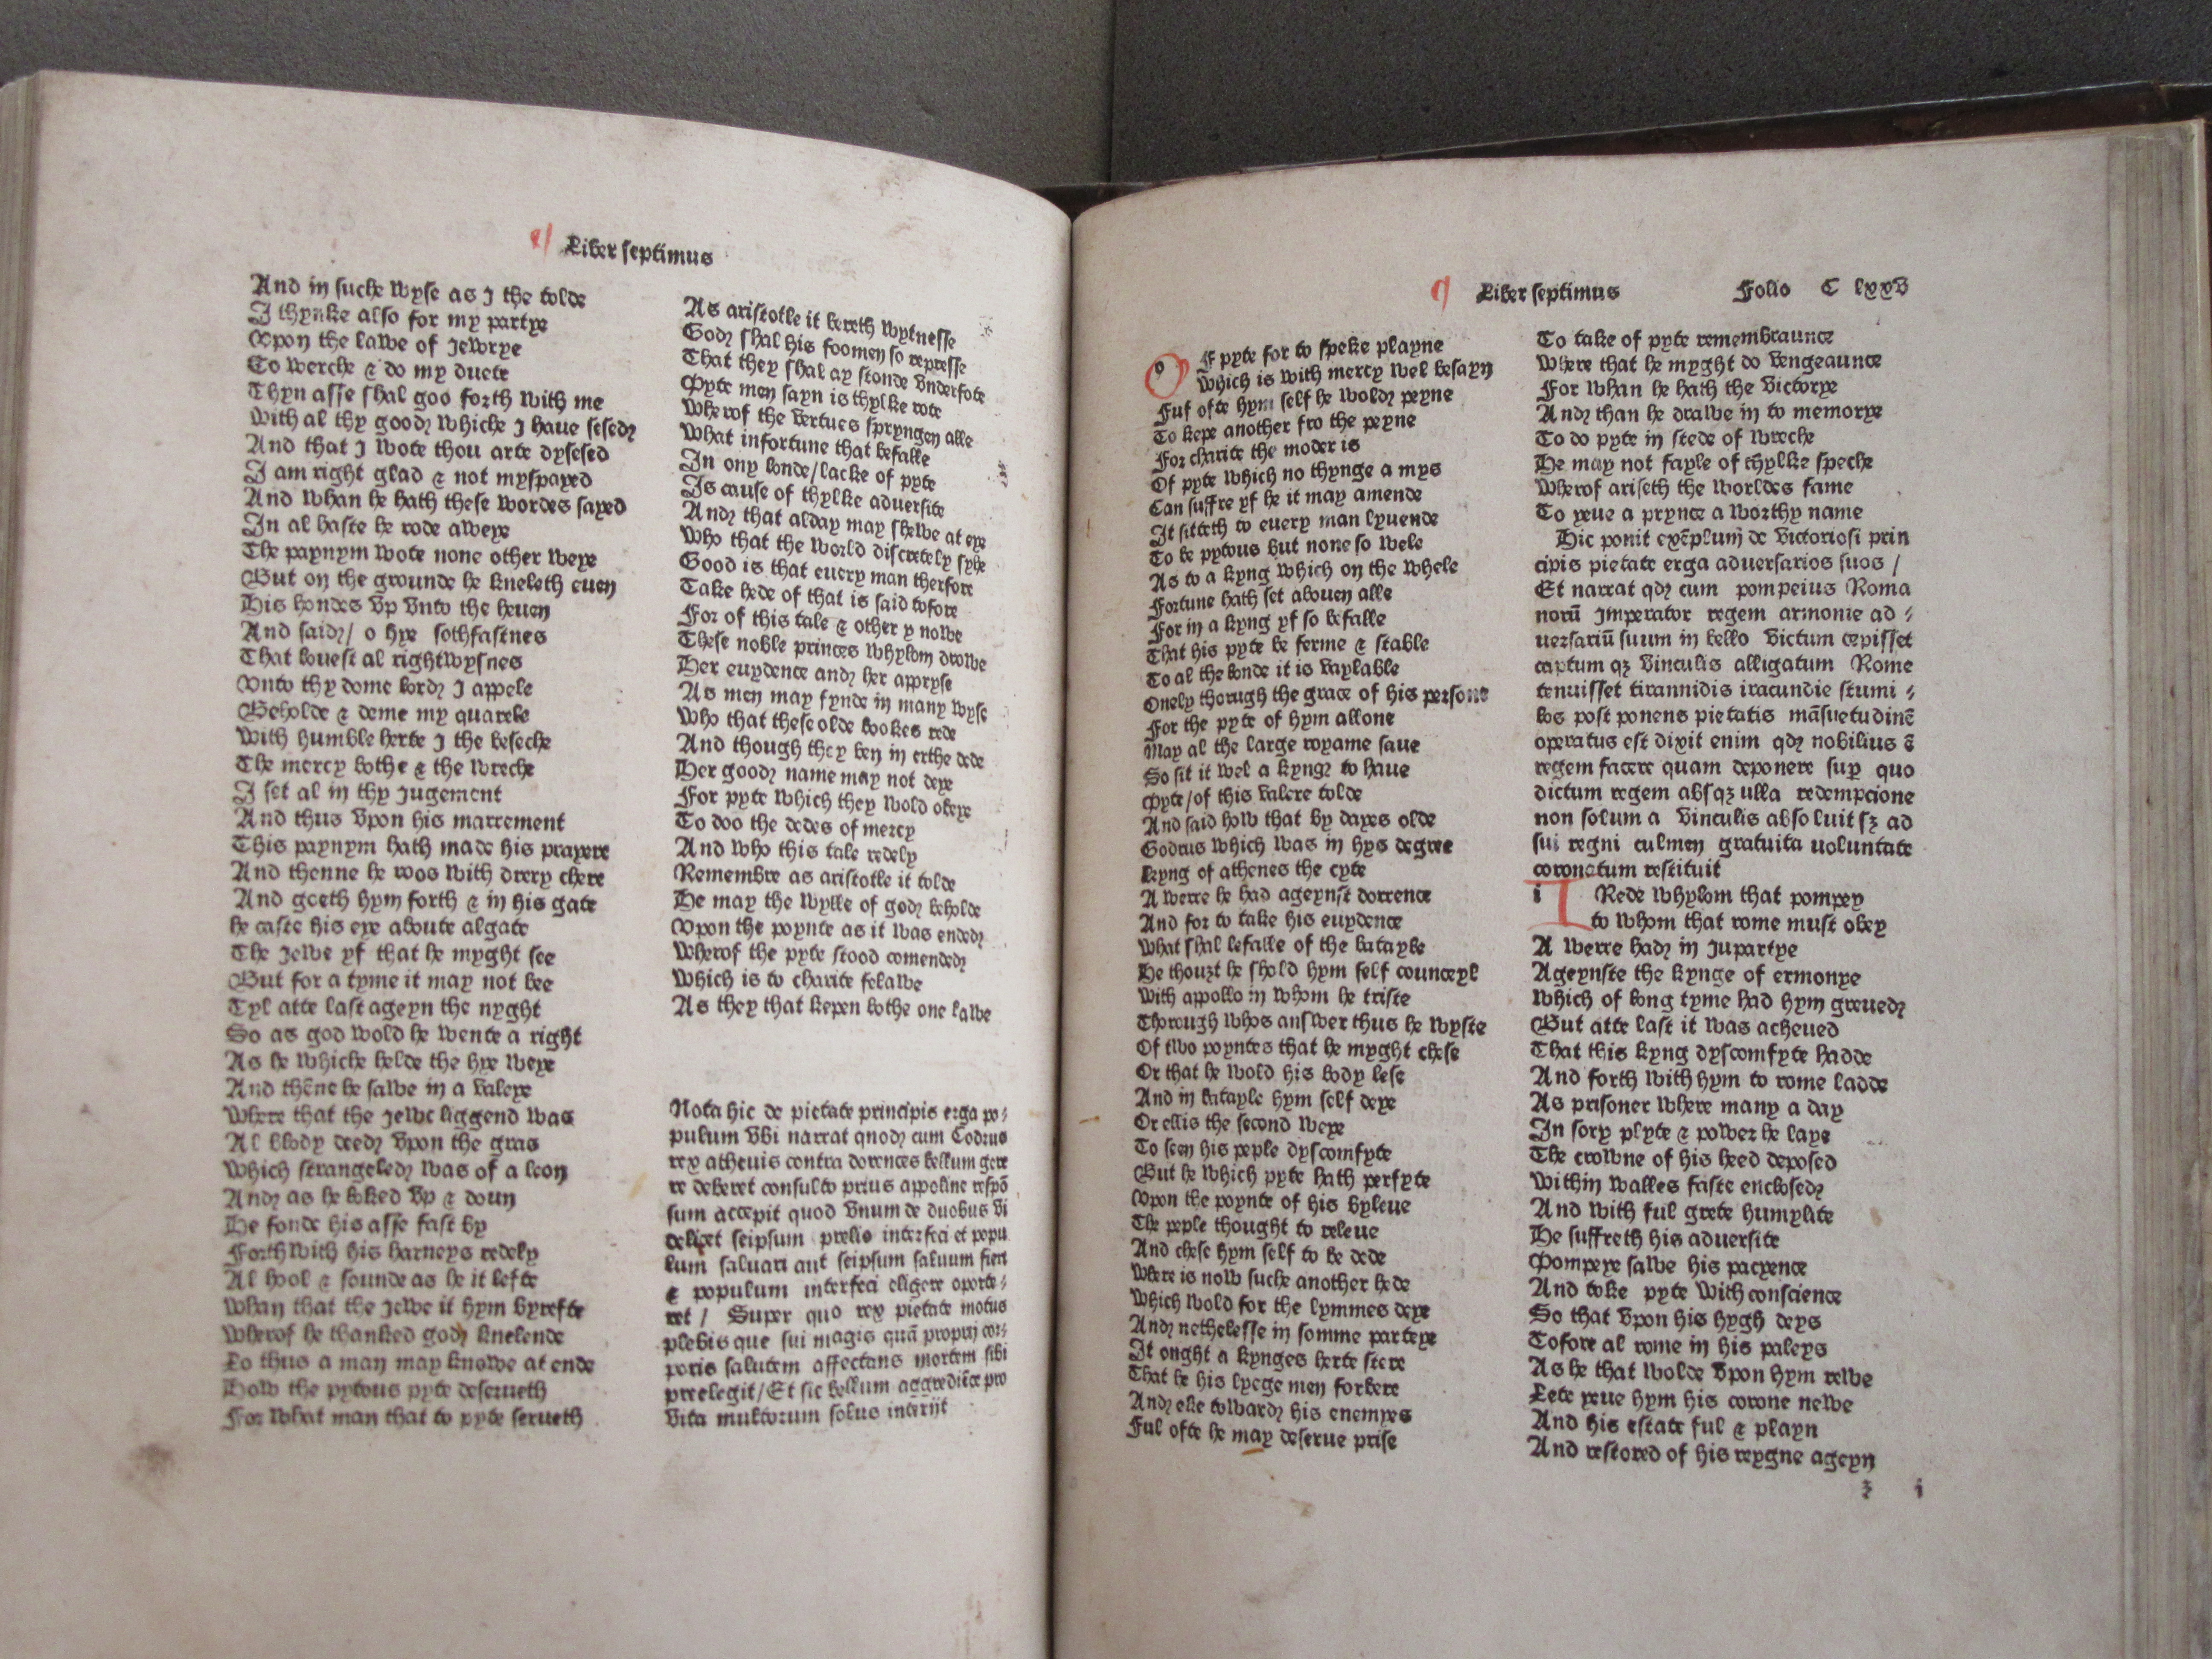 Liber septimus
And in suche wyse as I the tolde
I thynke also for my partye
Vpon the lawe of Jewrye
To werche & do my duete
Thyn asse shal goo forth with me
With al thy good whiche I haue sesed
And that I wote thou arte dysesed
I am right glad & not myspayed
And whan he hath these wordes sayed
In al haste he rode aweye
The paynym wote none other weye
But on the grounde he kneleth euen
His hondes vp vnto the heuen
And said / o hye sothfastnes
That louest al rightwysnes
Vnto thy dome lord I appele
Beholde & deme my quarele
With humble herte I the beseche
The mercy bothe & the wreche
I set al in thy Jugement
And thus vpon his marrement
This paynym hath made his prayere
And thenne he roos with drery chere
And goeth hym forth & in his gate
he caste his eye aboute algate
The Jewe yf that he myght see
But for a tyme it may not bee
Tyl atte last ageyn the nyght
So as god wold he wente a right
As he whiche helde the hye weye
And thēne he sawe in a valeye
Where that the Jewe liggend was
Al blody deed vpon the gras
Which strangeled was of a leon
And as he loked vp & doun
He fonde his asse fast by
Forth with his harneys redely
Al hool & sounde as he it lefte
Whan that the Jewe it hym byrefte
Wherof he thanked god knelende
Lo thus a man may knowe at ende
How the pytous pyte deserueth
For what man that to pyte serueth
As aristotle it bereth wytnesse
God shal his foomen so represse
That they shal ay stonde vnderfote
Pyte men sayn is thylke rote
Wherof the vertues spryngen alle
What infortune that befalle
In ony londe / lacke of pyte
Is cause of thylke aduersite
And that alday may shewe at eye
Who that the world discretely sylke
Good is that euery man therfore
Take hede of that is said tofore
For of this tale & other y nowe
These noble princes whylom drowe
Her euydence and her appryse
As men may fynde in many wyse
Who that these olde bookes rede
And though they ben in erthe dede
Her good name may not deye
For pyte which they wold obeye
To doo the dedes of mercy
And who this tale redely
Remembre as aristotle it tolde
He may the wylle of god beholde
Vpon the poynte as it was ended
Wherof the pyte stood comended
Which is to charite felawe
As they that kepen bothe one lawe
Nota hic de pietate principis erga po⸗
pulum vbi narrat quod cum Codrus
rex athenis contra dorences bellum gere
re deberet consulto prius appoline respō
sum accepit quod vnum de duobus vi
delicet seipsum prelio interfici et popu
lum saluari aut seipsum saluum fieri
& populum interfici eligere oporte⸗
ret / Super quo rex pietate motus
plebis que sui magis quā proprij cor⸗
poris salutem affectans mortem sibi
preelegit / Et sic bellum aggrediēs pro
vita multorum solus interijt
Liber septimus Folio C lxxv
o F pyte for to speke playne
Which is with mercy wel besayn
Ful ofte hym self he wold peyne
To kepe another fro the peyne
For charite the moder is
Of pyte which no thynge a mys
Can suffre yf he it may amende
It sitteth to euery man lyuende
To be pytous but none so wele
As to a kyng which on the whele
Fortune hath set abouen alle
For in a kyng yf so befalle
That his pyte be ferme & stable
To al the londe it is vaylable
Onely thorugh the grace of his persone
For the pyte of hym allone
May al the large royame saue
So sit it wel a kyng to haue
Pyte / of this valere tolde
And said how that by dayes olde
Codrus which was in hys degree
kyng of athenes the cyte
A werre he had ageynst dorrence
And for to take his euydence
What shal befalle of the batayle
He thouzt he shold hym self counceyl
With appollo in whom he triste
Thorugh whos answer thus he wyste
Of two poyntes that he myght chese
Or that he wold his body lese
And in batayle hym self deye
Or ellis the second weye
To seen his peple dyscomfyte
But he which pyte hath perfyte
Vpon the poynte of his byleue
The peple thought to releue
And chese hym self to be dede
Where is now suche another hede
Which wold for the lymmes deye
And nethelesse in somme parteye
It onght a kynges herte stere
That he his lyege men forbere
And eke toward his enemyes
Ful ofte he may deserue prise
To take of pyte remembraunce
Where that he myght do vengeaunce
For whan he hath the victorye
And than he drawe in to memorye
To do pyte in stede of wreche
He may not fayle of thylke speche
Wherof ariseth the worldes fame
To yeue a prynce a worthy name
Hic ponit exēplum de victoriosi prin
cipis pietate erga aduersarios suos /
Et narrat qd cum pompeius Roma
norū Imperator regem armonie ad⸗
uersariū suum in bello victum cepisset
captum qꝫ vinculis alligatum Rome
tenuisset tirannidis iracundie stumi⸗
los post ponens pietatis māsuetudinē
operatus est dixit enim qd nobilius ē
regem facere quam deponere sup quo
dictum regem absqꝫ ulla redempcione
non solum a vinculis absoluit sꝫ ad
sui regni culmen gratuita uoluntate
coronatum restituit
i Rede whylom that pompey
to whom that rome must obey
A werre had in Jupartye
Ageynste the kynge of ermonye
Which of long tyme had hym greued
But atte last it was acheued
That this kyng dyscomfyte hadde
And forth with hym to rome ladde
As prisoner where many a day
In sory plyte & power he laye
The crowne of his heed deposed
Within walles faste enclosed
And with ful grete humylite
He suffreth his aduersite
Pompeye sawe his pacyence
And toke pyte with conscience
So that vpon his hygh deys
Tofore al rome in his paleys
As he that wolde vpon hym rewe
Lete yeue hym his corone newe
And his estate ful & playn
And restored of his reygne ageyn
z i